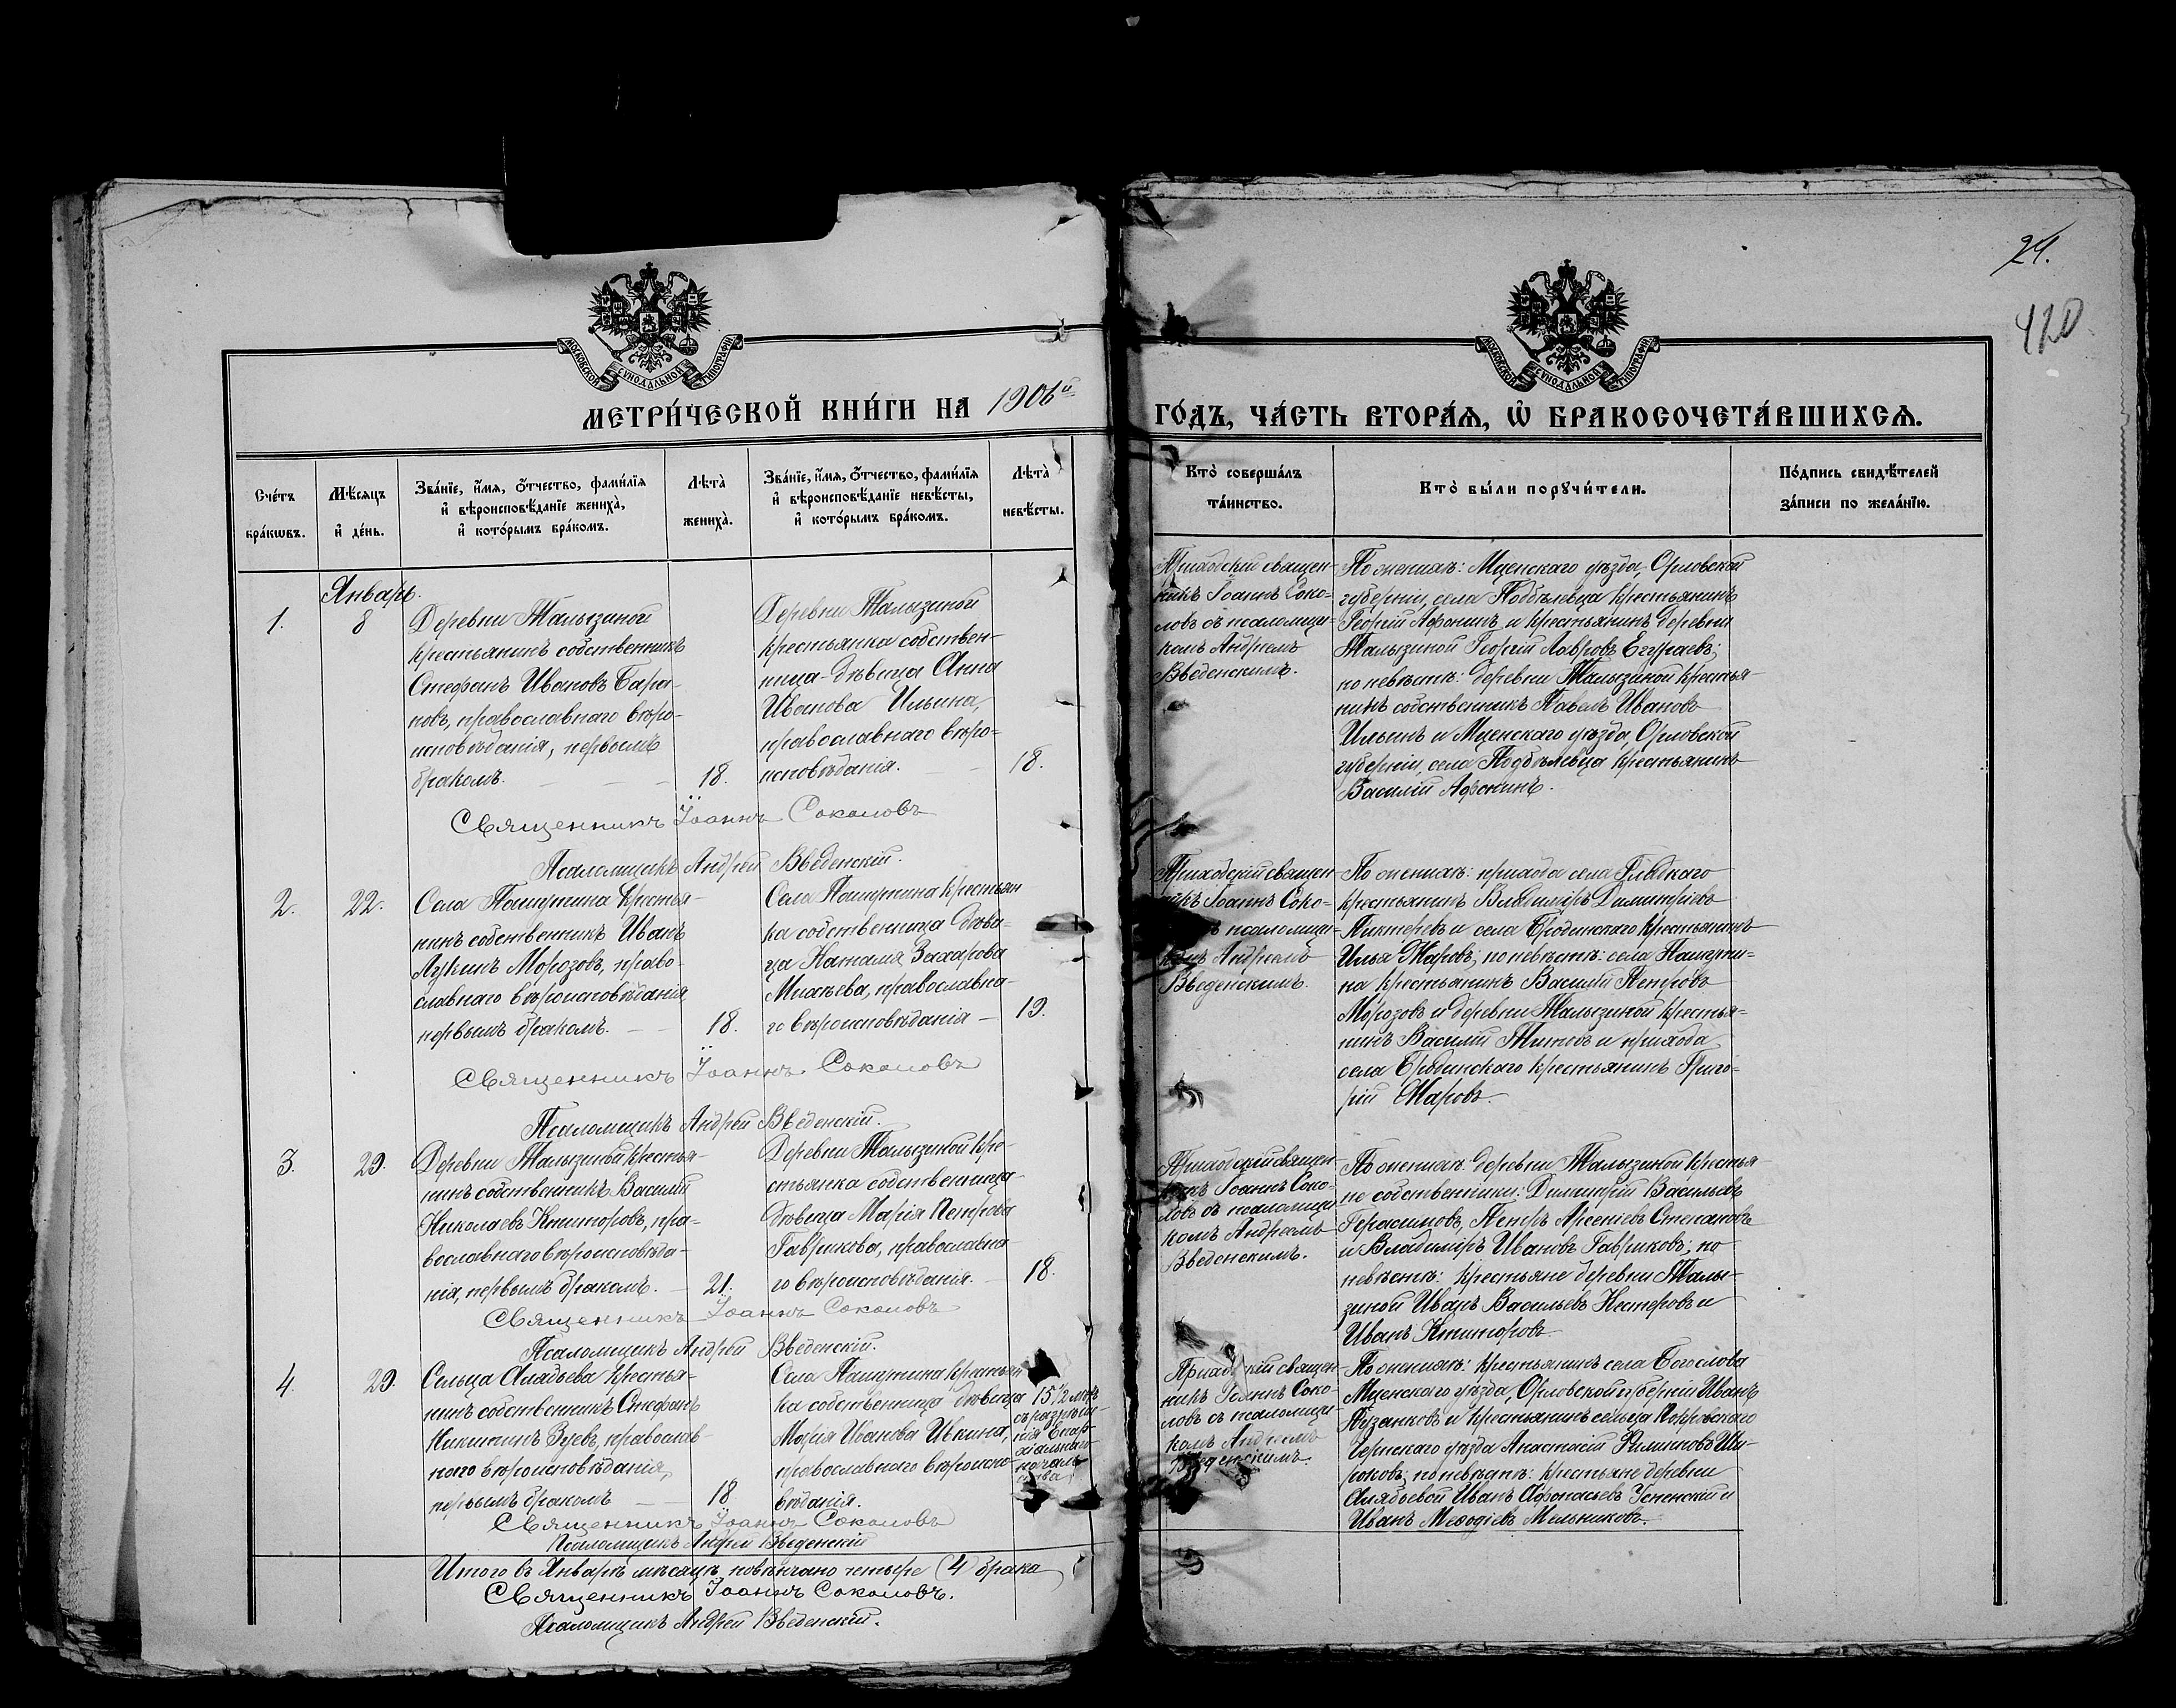 24.
420
МОСКОВСКОЙ СУНОДАЛЬНОЙ ТИПОГРАФІИ
МОСКОВСКОЙ СУНОДАЛЬНОЙ ТИПОГРАФІИ
МЕТРИ́ЧЕСКОЙ КНИ́ГИ НА 1906й
ГО́ДЪ, ЧА́СТЬ ВТОРА́Ѧ, Ѡ БРАКОСОЧЕТА́ВШИХСѦ.
Сче́тъ
бра́кωвъ.
Мѣ́сяцъ
и҆ де́нь.
Зва́нїе, и҆́мя, ѻ҆́тчество, фами́лїя
и҆ вѣроисповѣ́данїе жениха̀,
и҆ кото́рымъ бра́комъ.
Лѣта̀
жениха̀.
Зва́нїе, и҆́мя, ѻ҆́тчество, фами́лїя
и҆ вѣроисповѣ́данїе невѣ́сты,
и҆ кото́рымъ бра́комъ.
Лѣта̀
невѣ́сты.
Кто̀ соверша́лъ
та́инство.
Кто̀ бы́ли порꙋчи́тели.
По́дпись свидѣ́телей
за́писи по жела́нїю.
Январь.
1.
8
Деревни Малызиной
крестьянинъ собственникъ
Стефанъ Ивановъ Бара-
новъ, православнаго вѣро-
исповѣданія, первымъ
бракомъ.
18.
Деревни Малызиной
крестьянка собствен-
ница-дѣвица Анна
Иванова Ильина,
православнаго вѣро-
исповѣданія.
18.
Приходскій священ-
никъ Іоаннъ Соко-
ловъ съ псаломщи-
комъ Андреемъ
Введенскимъ.
По женихѣ: Мценскаго уѣзда, Орловской
губерніи, села Подбѣлевца крестьянинъ
Георгій Афонинъ, и крестьянинъ деревни
Малызиной Георгій Лавровъ Егураевъ;
по невѣстѣ: деревни Малызиной крестья-
нинъ собственникъ Павелъ Ивановъ
Ильинъ и Мценскаго уѣзда, Орловской
губерніи, села Подбѣлевца крестьянинъ
Василій Афонинъ.
Священникъ Іоаннъ Соколовъ
Псаломщикъ Андрей Введенскій.
2.
22.
Села Пашутина крестья-
нинъ собственникъ Иванъ
Лукинъ Морозовъ, право-
славнаго вѣроисповѣданія
первымъ бракомъ.
18.
Села Пашутина крестьян
ка собственница дѣви-
ца Наталія Захарова
Михѣева, православна-
го вѣроисповѣданія
19.
Приходскій священ
никъ Іоаннъ Соко-
псаломщи-
комъ Андреемъ
Введенскимъ.
По женихѣ: прихода села Глѣдкаго
крестьянинъ Владиміръ Димитріевъ
и села Бродинскаго крестьянинъ
Илья Жаровъ; по невѣстѣ: села Пашути-
на крестьянинъ Василій Петровъ
Морозовъ и деревни Малызиной крестья-
нинъ Василій Титовъ и прихода
села Бродинскаго крестьянинъ Григо-
рій Жаровъ.
Священникъ Іоаннъ Соколовъ
Псаломщикъ Андрей Введенскій.
3.
29.
Деревни Малызиной крестья-
нинъ собственникъ Василій
Николаевъ Ктиторовъ, пра-
вославнаго вѣроисповѣда-
нія, первымъ бракомъ.
21.
Деревни Малызиной кре-
стьянка собственница
дѣвица Марія Петрова
Гаврикова, православна
го вѣроисповѣданія.
18.
Приходскій священ
никъ Іоаннъ Соко-
ловъ съ псаломщи
комъ Андреемъ
Введенскимъ.
По женихѣ: деревни Малызиной крестья-
не собственники: Димитрій Васильевъ
Герасимовъ, Петръ Арсеніевъ Степановъ
и Владиміръ Ивановъ Гавриковъ; по
невѣстѣ: крестьяне деревни Малы-
зиной Иванъ Васильевъ Нестеровъ и
Иванъ Ктиторовъ.
Священникъ Іоаннъ Соколовъ
Псаломщикъ Андрей Введенскій.
4.
29.
Сельца Алядьева крестья-
нинъ собственникъ Стефанъ
Никитинъ Зуевъ, православ-
наго вѣроисповѣданія,
первымъ бракомъ
18
Села Пашутина крестьян
ка собственница дѣвица
Марія Иванова Ивкина,
православнаго вѣроиспо-
вѣданія.
15 1/2 лѣтъ
съ разрѣше-
нія Епар-
хіальнаго
началь-
ства
Приходскій священ
никъ Іоаннъ Соко-
ловъ съ псаломщи-
комъ Андреемъ
Введенскимъ.
По женихѣ: крестьянинъ села Богослова
Мценскаго уѣзда, Орловской губерніи Иванъ
Пузанковъ и крестьянинъ сельца Покровскаго
Чернскаго уѣзда Анастасій Филипповъ Ши-
роковъ; по невѣстѣ: крестьяне деревни
Алядьевой Иванъ Афонасьевъ Успенскій и
Иванъ Меѳодіевъ Мельниковъ.
Священникъ Іоаннъ Соколовъ
Псаломщикъ Андрей Введенскій
Итого въ Январѣ мѣсяцѣ повѣнчано четыре (4) брака
Священникъ Іоаннъ Соколовъ.
Псаломщикъ Андрей Введенскій.